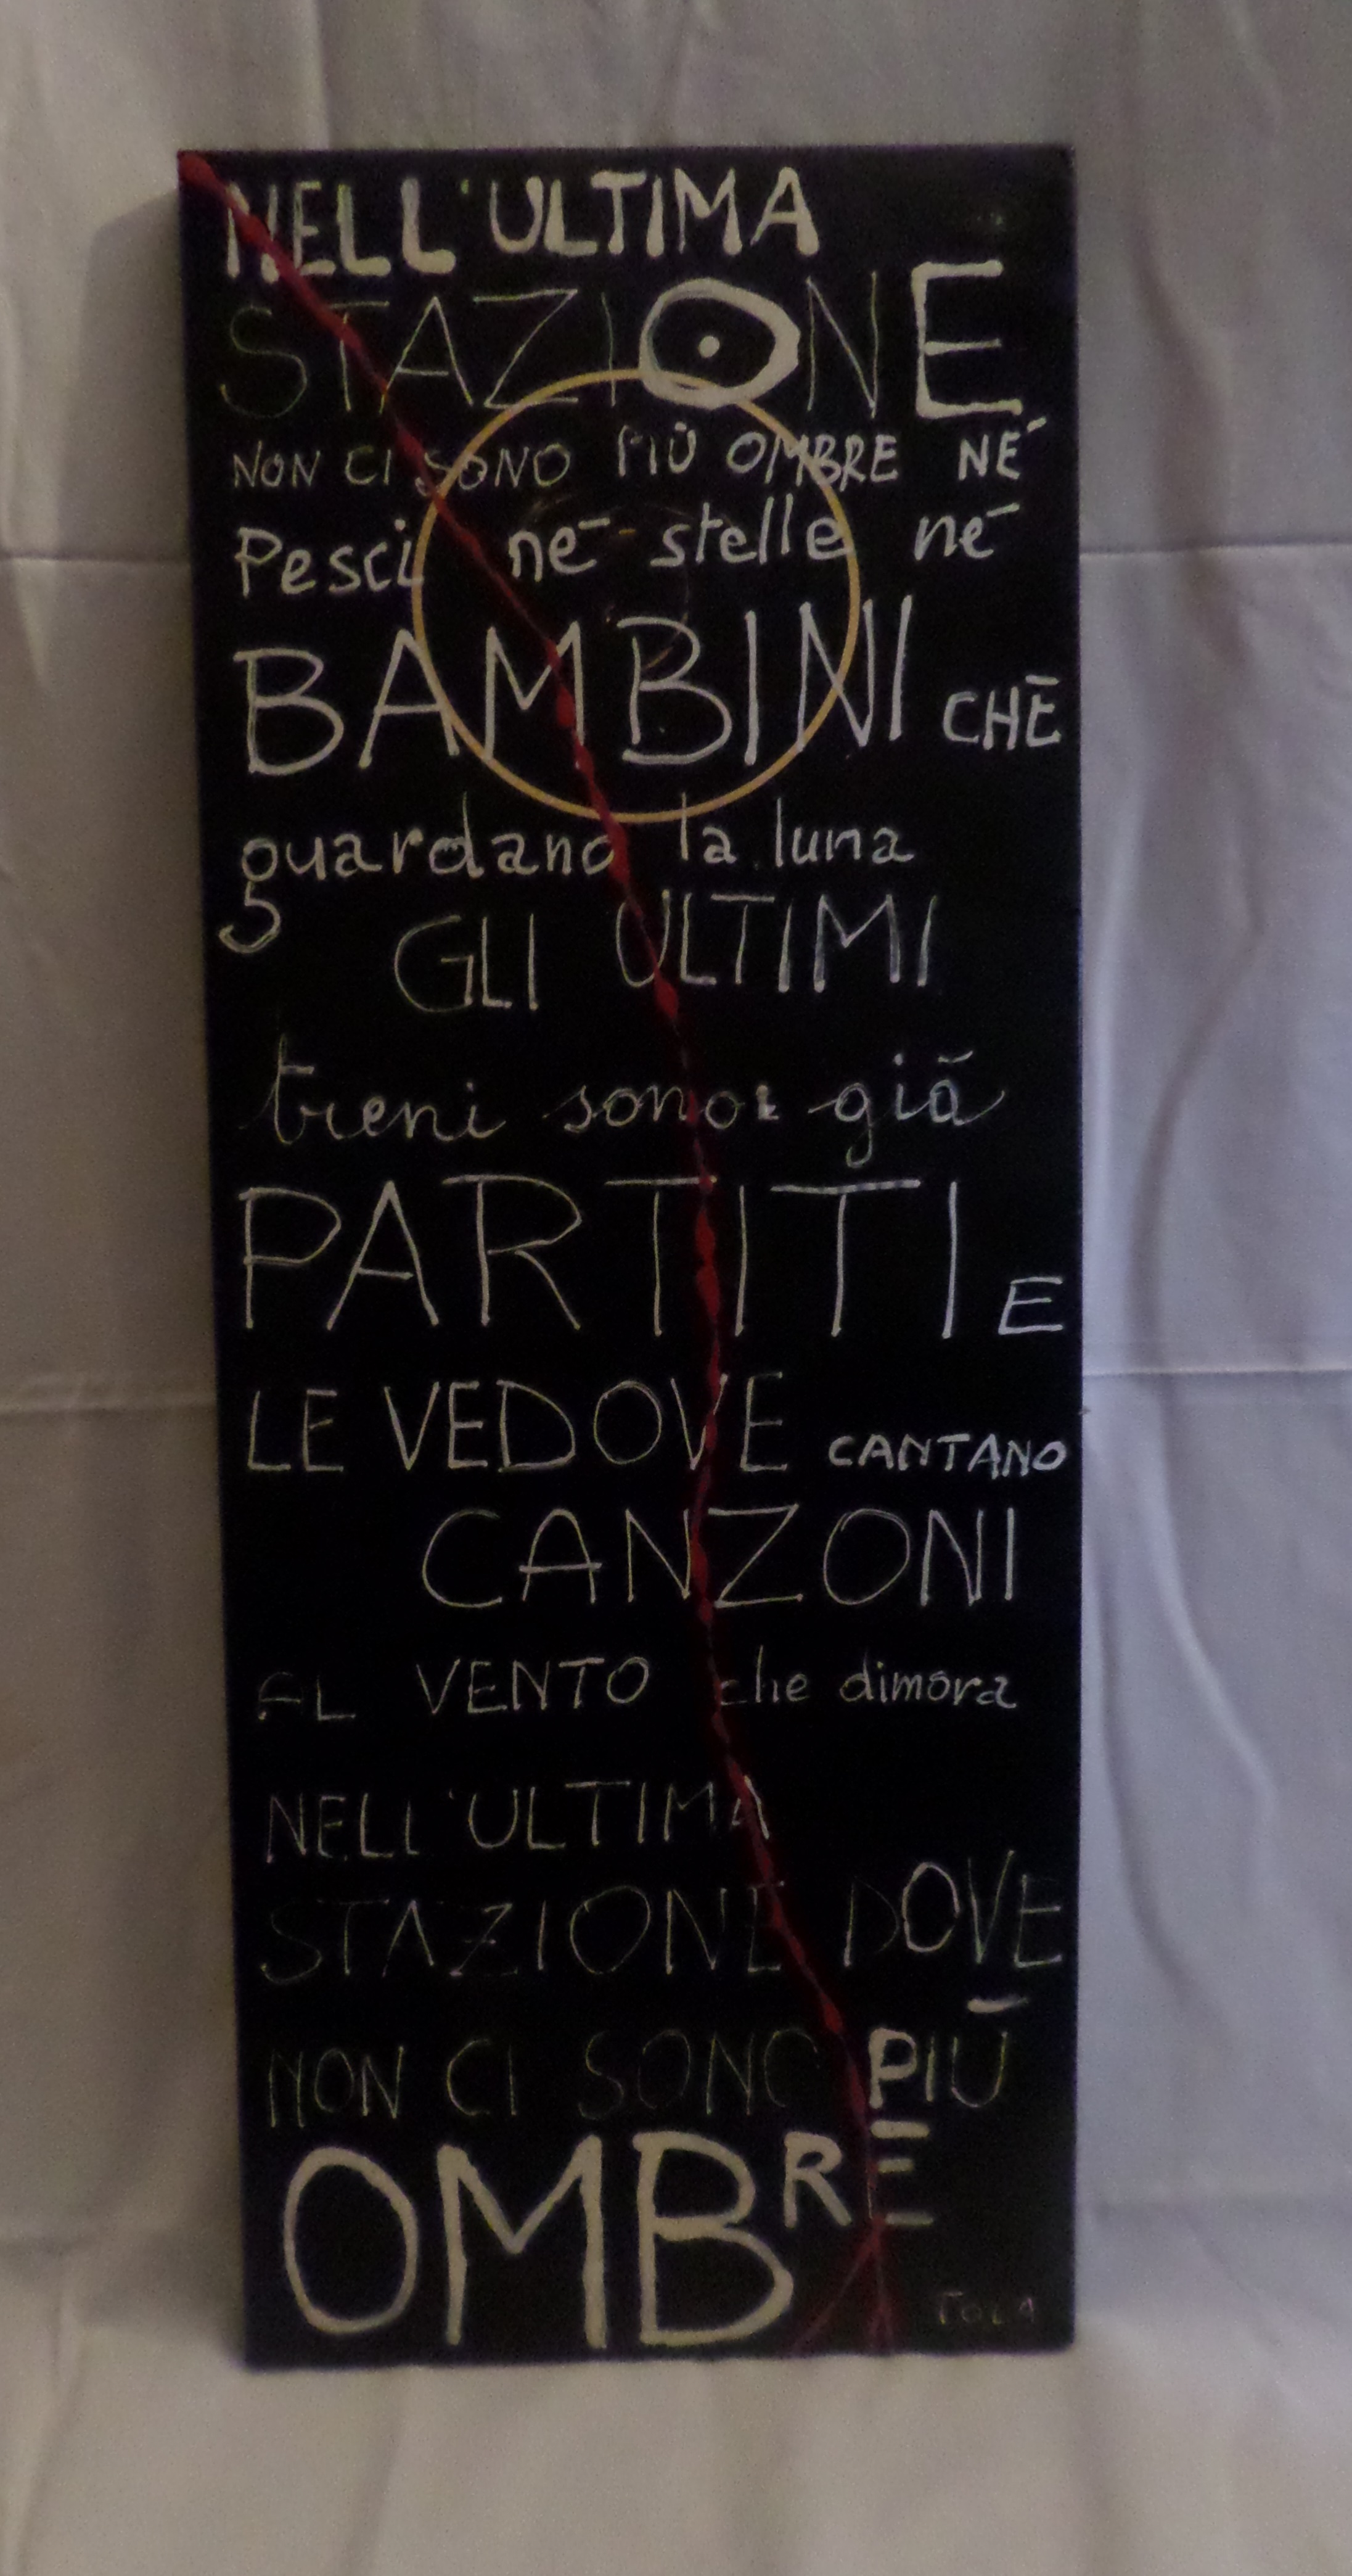 NELL'ULTIMA
STAZIONE
NON CI SONO PIÙ OMBRE NÉ
Pesci né stelle né
BAMBINI CHÈ
guardano la luna
GLI ULTIMI
treni sono già
PARTITI E
LE VEDOVE CANTANO
CANZONI
AL VENTO che dimora
NELL'ULTIMA
STAZIONE DOVE
NON CI SONO PIÙ
OMBRE